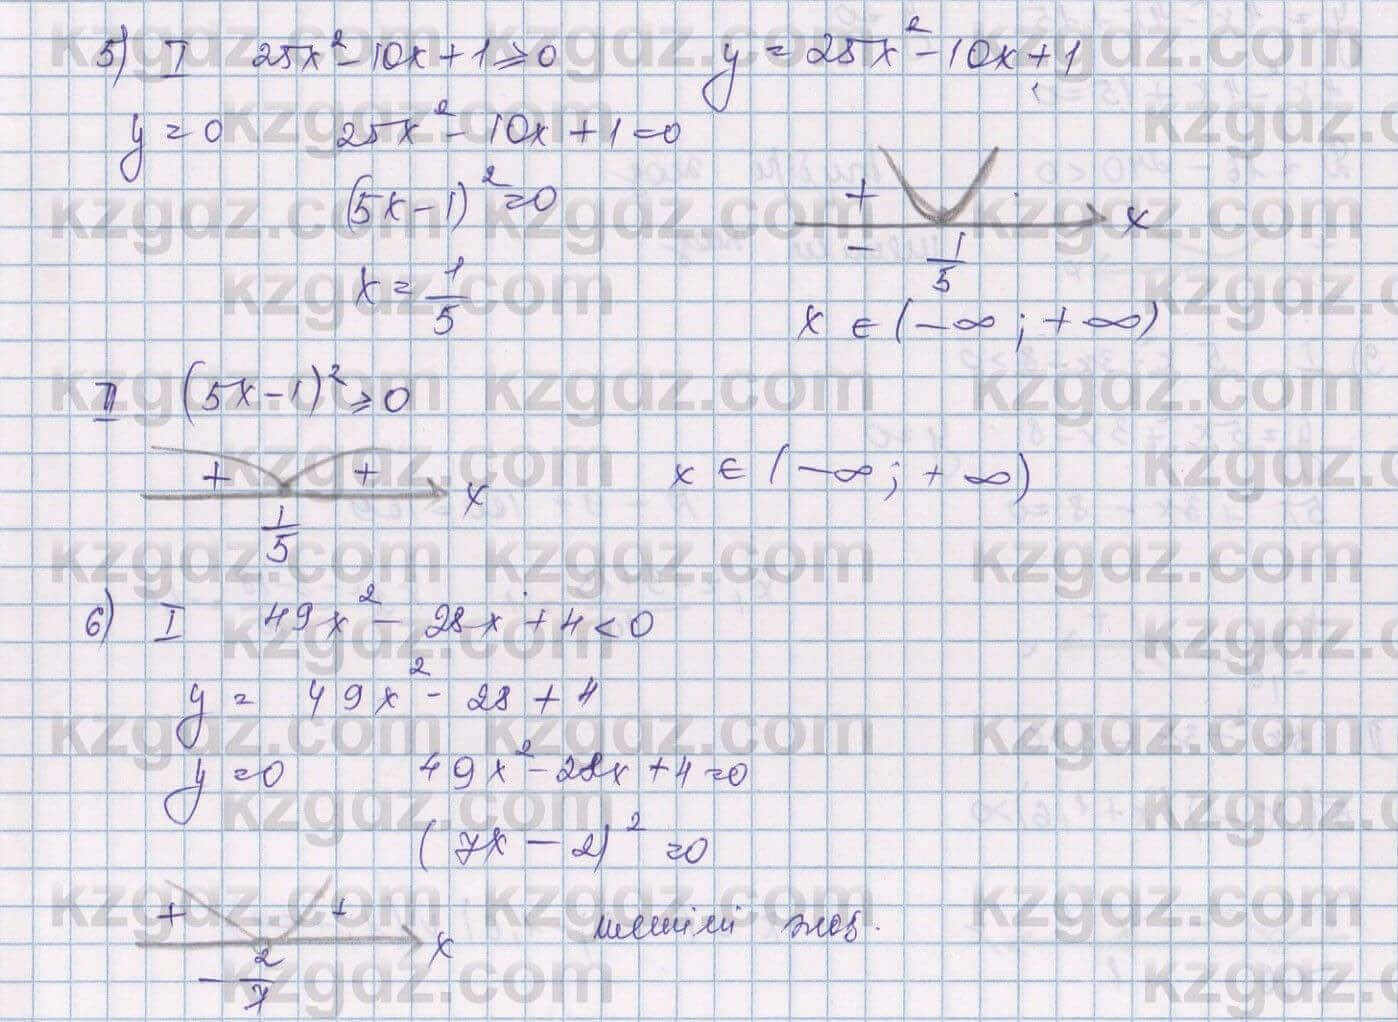 5) I 25x² - 10x + 1 ≥ 0 y = 25x² - 10x + 1
y = 0 25x² - 10x + 1 = 0
(5x - 1)² = 0
+ x
- 1/5
x = 1/5
x ∈ (-∞; +∞)
II (5x - 1)² ≥ 0
+ + x
1/5
x ∈ (-∞; +∞)
6) I 49x² - 28x + 4 < 0
y = 49x² - 28 + 4
y = 0 49x² - 28x + 4 = 0
(7x - 2)² = 0
+ + x
- 2/7
шешімі жоқ.
kzgdz.com